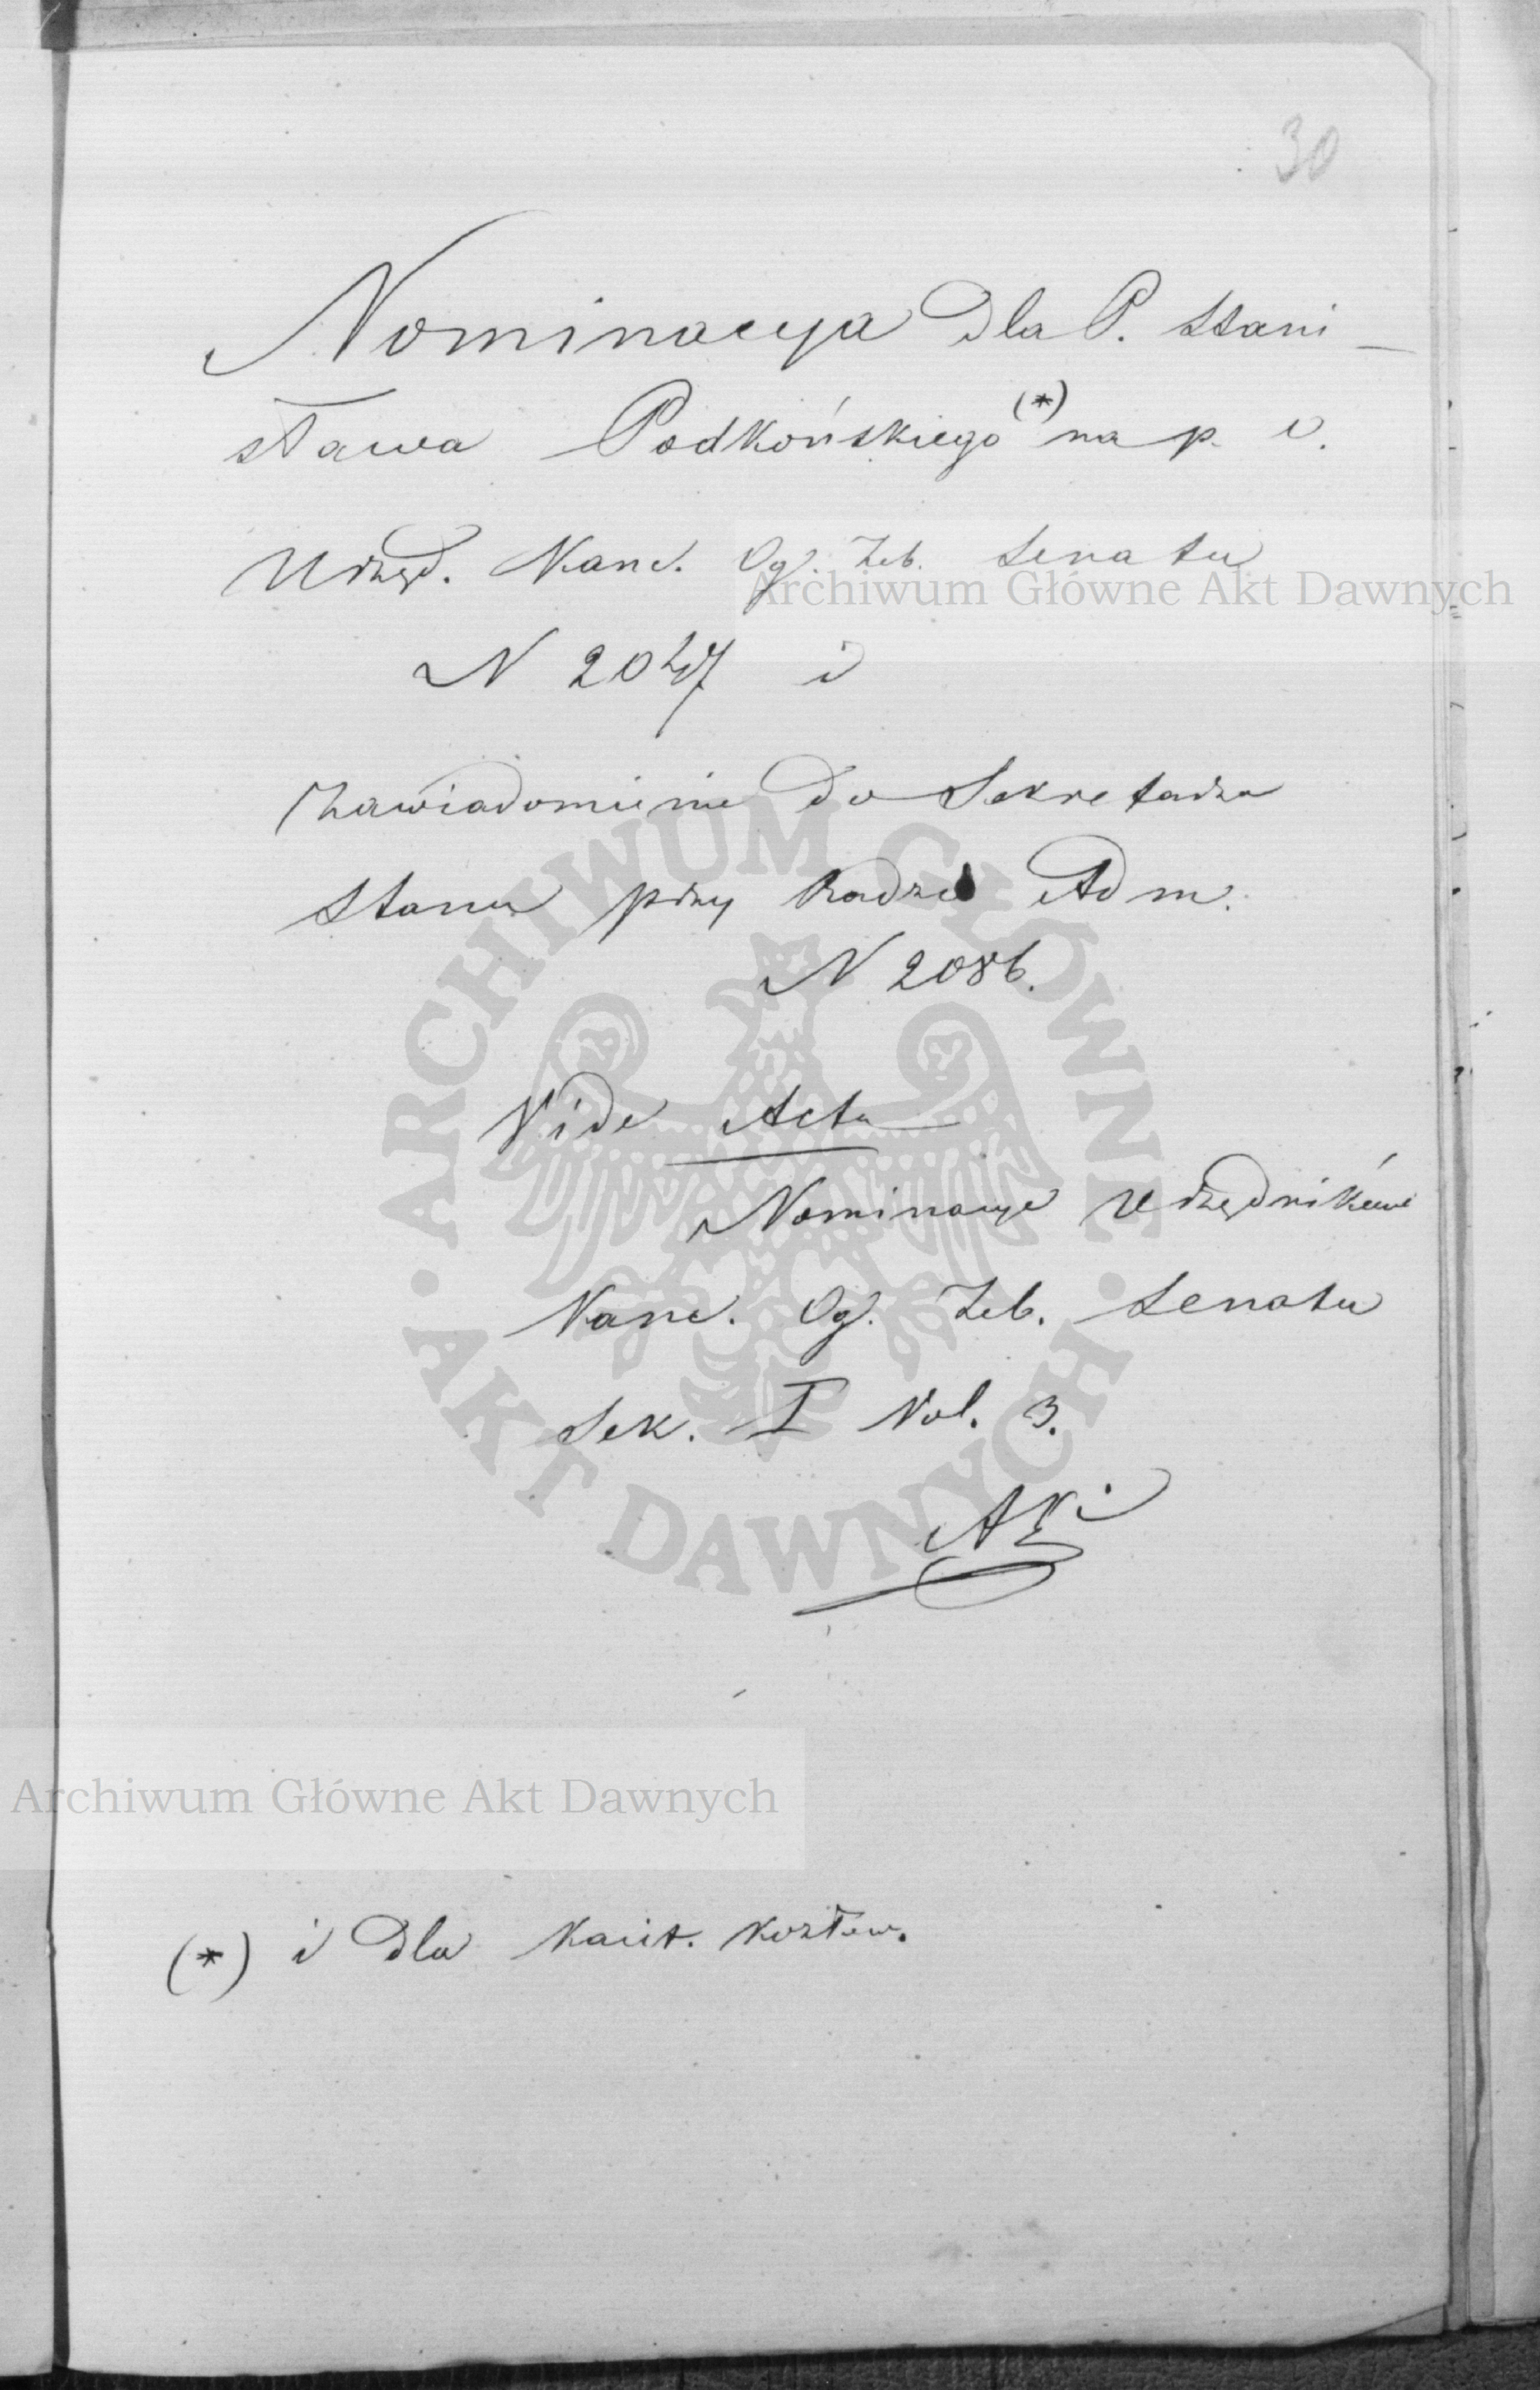 30
Nominacya dla P. Stani-
sława Podkońskiego (*) na p. o.
Urzęd. Kanc. Og. Zeb. Senatu
N 2047 i
Zawiadomienie do Sekretarza
Stanu przy Radzie Adm.
N 2086.
Vide Acta
Nominacye Urzędników
Kanc. Og. Zeb. Senatu
Sek. I Vol. 3.
(*) i dla
Archiwum Główne Akt Dawnych
Archiwum Główne Akt Dawnych
ARCHIWUM GŁÓWNE AKT DAWNYCH